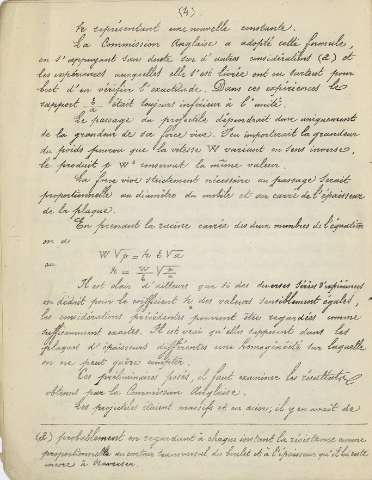 (4)
K représentant une nouvelle constante.
La Commission Anglaise a adopté cette formule,
en s'appuyant sans doute sur d'autres considérations (2) et
les expériences auxquelles elle s'est livrée ont eu surtout pour
but d'en vérifier l'exactitude. Dans ces expériences le
rapport e/a était toujours inférieur à l'unité.
Le passage du projectile dépendrait donc uniquement
de la grandeur de sa force vive. Peu importerait la grandeur
du poids pourvu que la vitesse W variant en sens inverse,
le produit p W² conservât la même valeur.
La force vive strictement nécessaire au passage serait
proportionnelle au diamètre du mobile et au carré de l'épaisseur
de la plaque.
En prenant la racine carrée des deux membres de l'équation
on a
W √p = k t √a
ou
k = W/t √p/a
Il est clair d'ailleurs que si des diverses séries d'expériences
on déduit pour le coefficient k des valeurs sensiblement égales,
les considérations précédentes peuvent être regardées comme
suffisamment exactes. Il est vrai qu'elles supposent dans les
plaques d'épaisseurs différentes une homogénéité sur laquelle
on ne peut guère compter.
Ces préliminaires posés, il faut examiner les résultats
obtenus par la Commission Anglaise.
Les projectiles étaient massifs et en acier; il y en avait de
(2) probablement en regardant à chaque instant la résistance comme
proportionnelle au contour transversal du boulet et à l'épaisseur qu'il lui reste
encore à traverser.